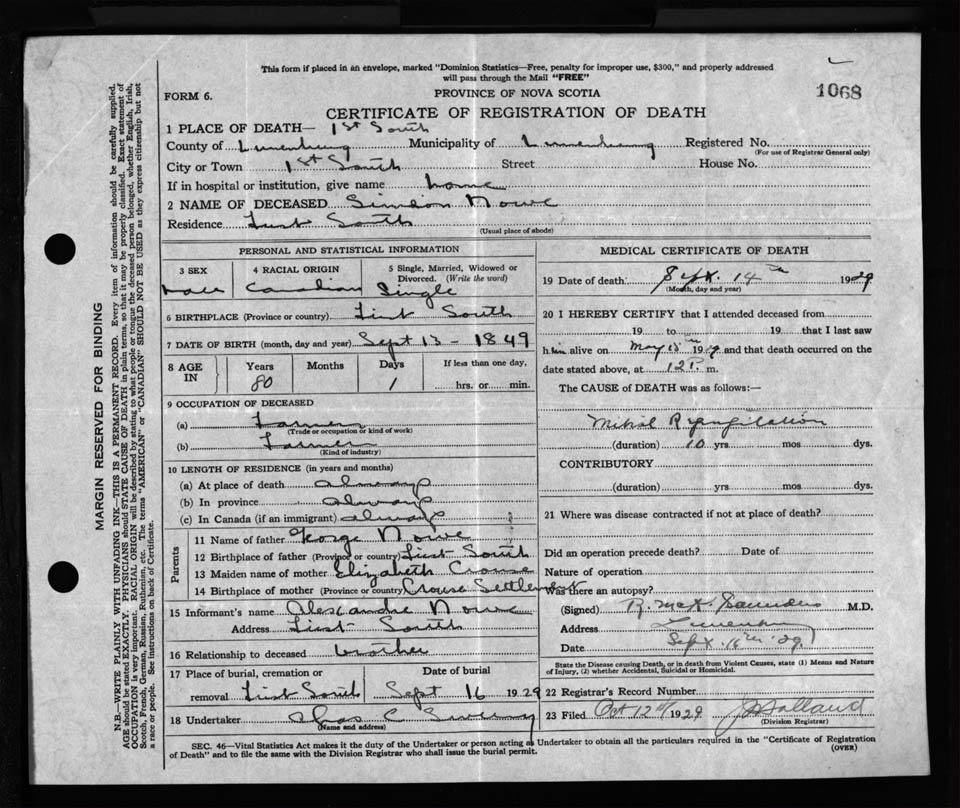 This form if placed in an envelope, marked "Dominion Statistics—Free, penalty for improper use, $300," and properly addressed
will pass through the Mail "FREE"
FORM 6.
PROVINCE OF NOVA SCOTIA
1068
CERTIFICATE OF REGISTRATION OF DEATH
1 PLACE OF DEATH— 1st South
County of Lunenburg Municipality of Lunenburg Registered No.
(For use of Registrar General only)
City or Town 1st South Street House No.
If in hospital or institution, give name home
2 NAME OF DECEASED Simeon Nowe
Residence First South
(Usual place of abode)
PERSONAL AND STATISTICAL INFORMATION
3 SEX 4 RACIAL ORIGIN 5 Single, Married, Widowed or
Divorced. (Write the word)
Male Canadian Single
6 BIRTHPLACE (Province or country) First South
7 DATE OF BIRTH (month, day and year) Sept 13 - 1849
8 AGE IN Years Months Days If less than one day,
80 1 hrs. or min.
9 OCCUPATION OF DECEASED
(a) Farmer
(Trade or occupation or kind of work)
(b) Farmer
(Kind of industry)
10 LENGTH OF RESIDENCE (in years and months)
(a) At place of death always
(b) In province always
(c) In Canada (if an immigrant) always
Parents
11 Name of father George Nowe
12 Birthplace of father (Province or country) First South
13 Maiden name of mother Elizabeth Crouse
14 Birthplace of mother (Province or country) Crouse Settlement
15 Informant's name Alexandre Nowe
Address First South
16 Relationship to deceased brother
17 Place of burial, cremation or Date of burial
removal First South Sept 16 1929
18 Undertaker Chas C
(Name and address)
MEDICAL CERTIFICATE OF DEATH
19 Date of death: Sept. 14th 1929
(Month, day and year)
20 I HEREBY CERTIFY that I attended deceased from
19 to 19 that I last saw
him alive on May 15th 19 and that death occurred on the
date stated above, at 12 P. m.
The CAUSE of DEATH was as follows:—
Mitral Regurgitation
(duration) 10 yrs mos dys.
CONTRIBUTORY
(duration) yrs mos dys.
21 Where was disease contracted if not at place of death?
Did an operation precede death? Date of
Nature of operation
Was there an autopsy?
(Signed) R. McK. Saunders M.D.
Address Lunenburg
Date Sept. 16th '29
State the Disease causing Death, or in death from Violent Causes, state (1) Means and Nature
of Injury, (2) whether Accidental, Suicidal or Homicidal.
22 Registrar's Record Number
23 Filed Oct 12th 1929 Holland
(Division Registrar)
SEC. 46—Vital Statistics Act makes it the duty of the Undertaker or person acting as Undertaker to obtain all the particulars required in the "Certificate of Registration
of Death" and to file the same with the Division Registrar who shall issue the burial permit.
(OVER)
MARGIN RESERVED FOR BINDING
N.B.—WRITE PLAINLY WITH UNFADING INK—THIS IS A PERMANENT RECORD. Every item of information should be carefully supplied.
AGE should be stated EXACTLY. PHYSICIANS should STATE CAUSE OF DEATH in plain terms, so that it may be properly classified. Exact statement of
OCCUPATION is very important. RACIAL ORIGIN will be described by stating to what people or tongue the deceased person belonged, whether English, Irish,
Scotch, French, German, Russian, Ruthenian, etc. The terms "AMERICAN" or "CANADIAN" SHOULD NOT BE USED as they express citizenship but not
a race or people. See instructions on back of Certificate.